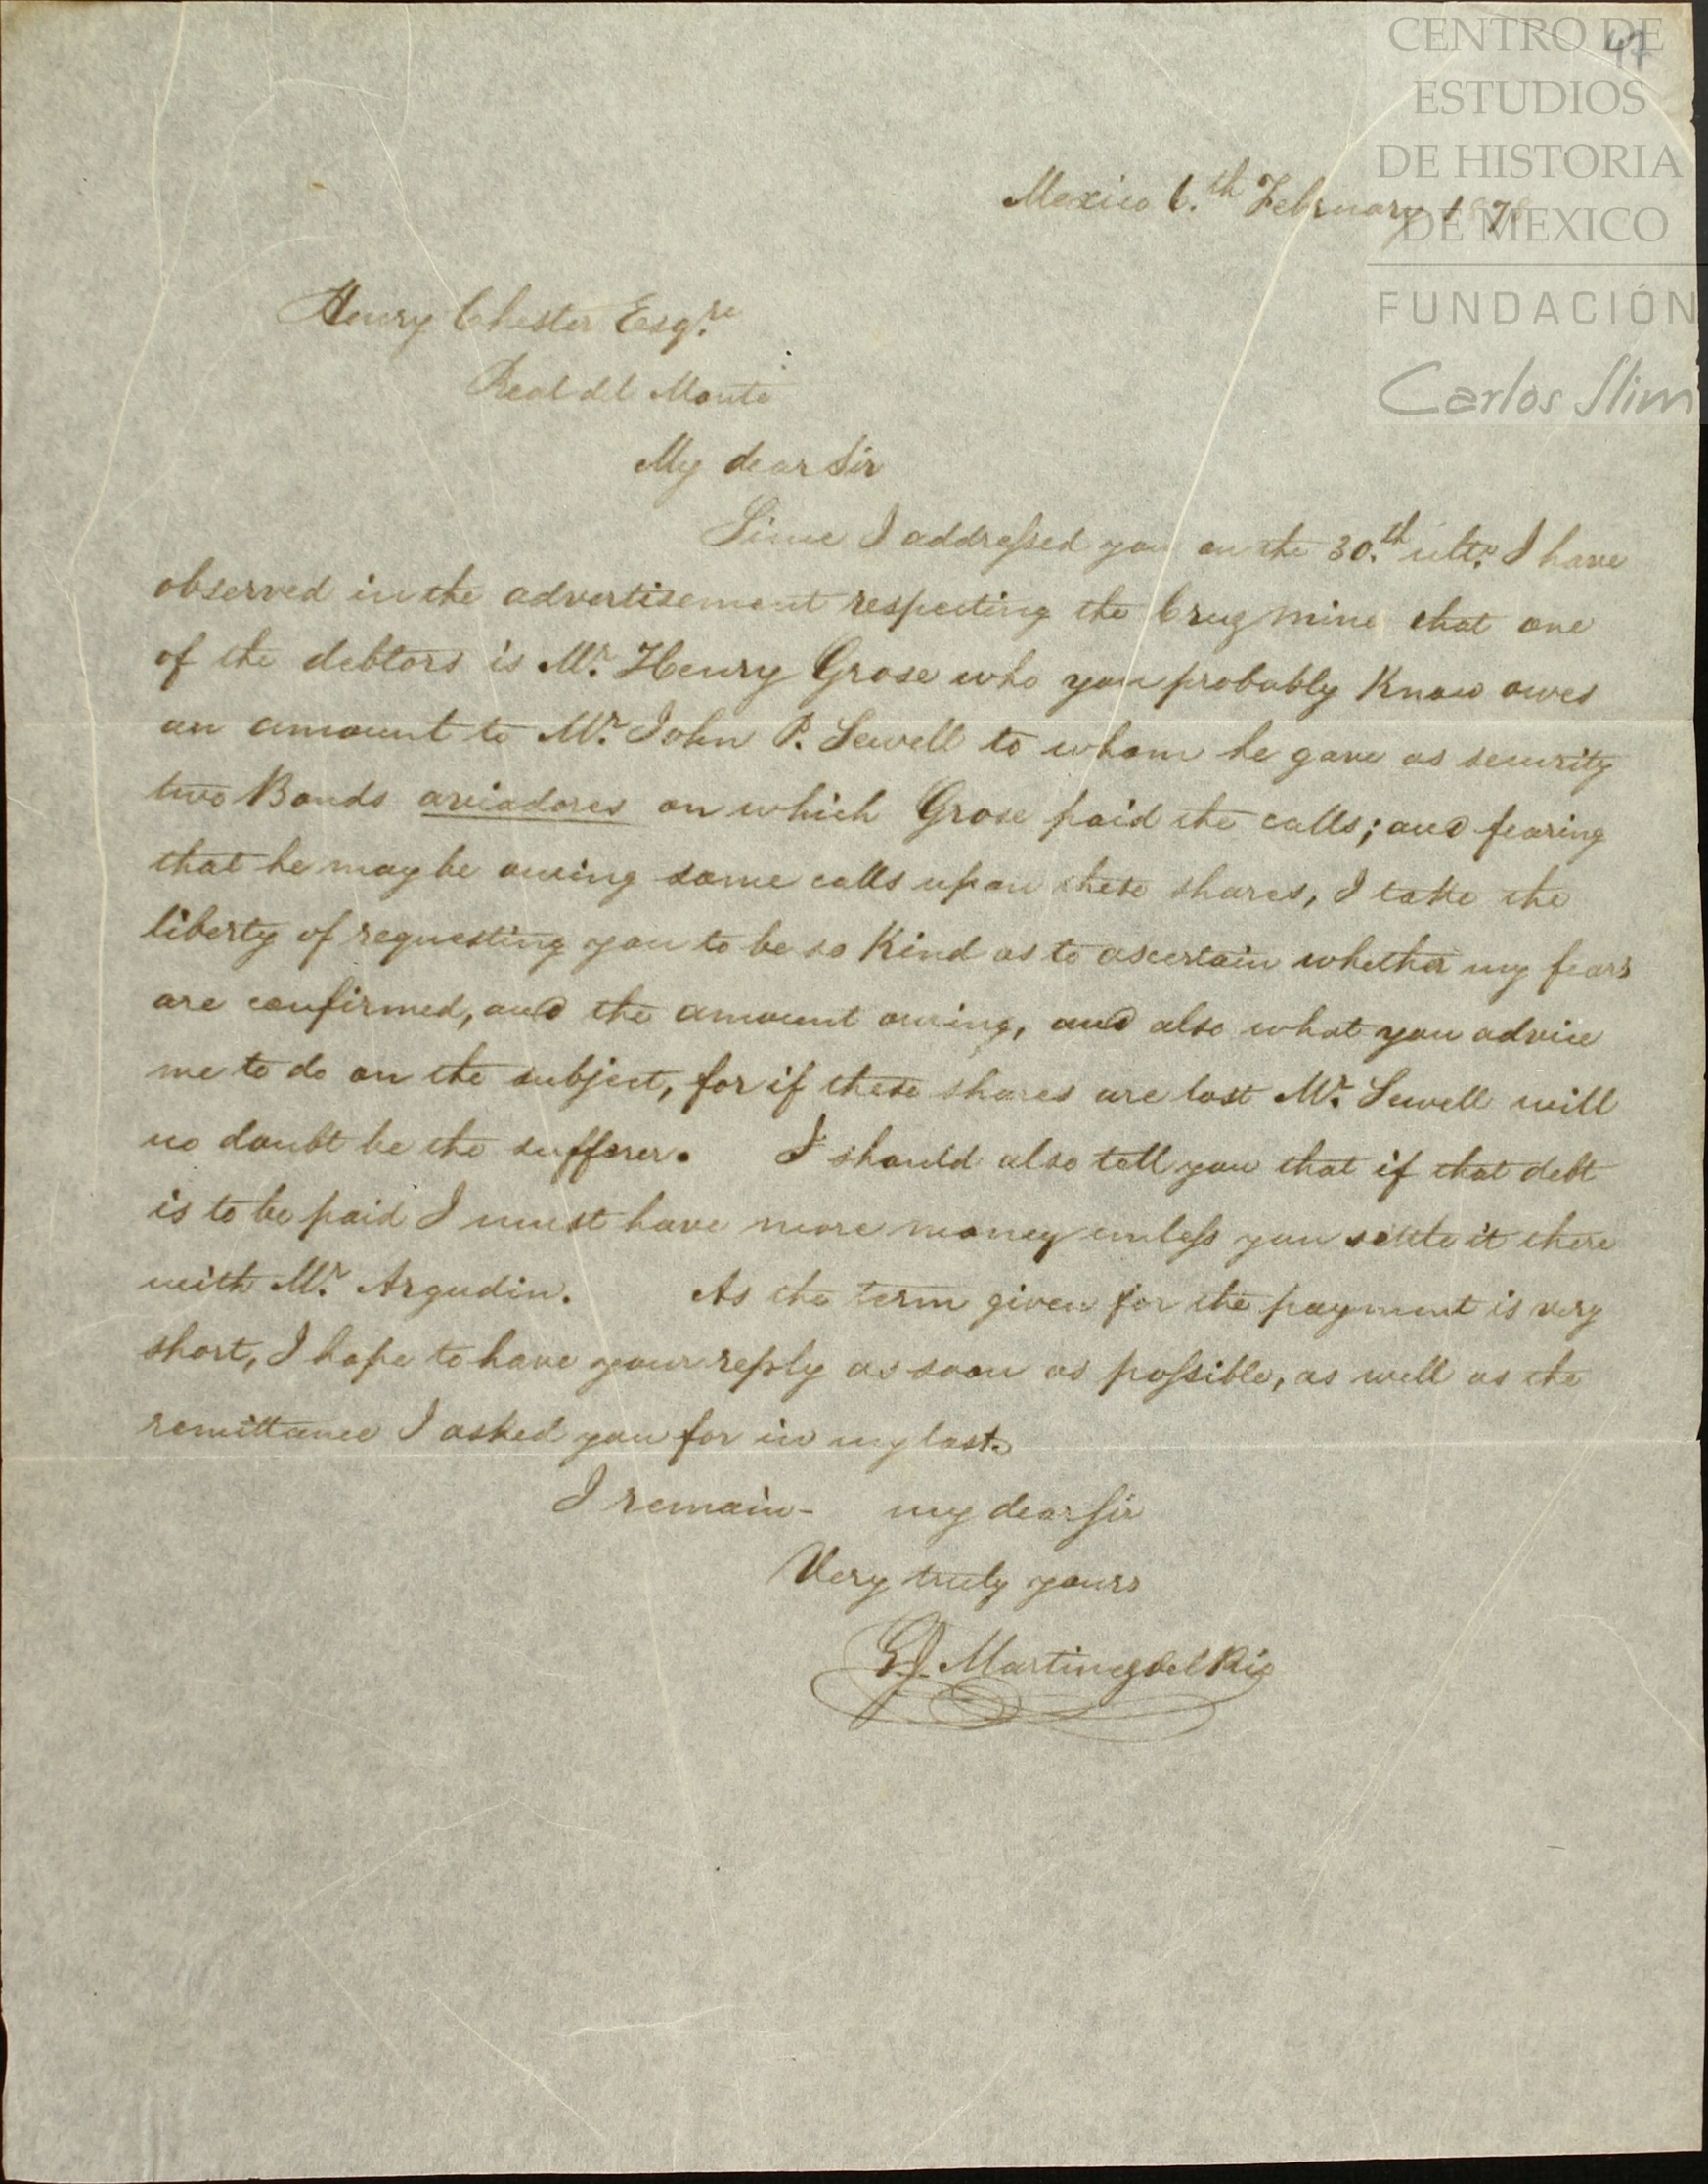 CENTRO DE
ESTUDIOS
DE HISTORIA
DE MEXICO
FUNDACIÓN
Carlos Slim
47
Mexico 6.th February
Henry Chester Esqre.
Real del Monte
My dear Sir
Since I addressed you on the 30.th ulto. I have
observed in the advertisement respecting the Cruz mine that one
of the debtors is Mr. Henry Grose who you probably know owes
an amount to Mr. John P. Sewell to whom he gave as security
two Bonds aviadores on which Grose paid the calls; and fearing
that he may be owing some calls upon these shares, I take the
liberty of requesting you to be so kind as to ascertain whether my fears
are confirmed, and the amount owing, and also what you advice
me to do on the subject, for if these shares are lost Mr. Sewell will
no doubt be the sufferer. I should also tell you that if that debt
is to be paid I must have more money unless you settle it there
with Mr. Argudin. As the term given for the payment is very
short, I hope to have your reply as soon as possible, as well as the
remittance I asked you for in my last.
I remain - my dear Sir
Very truly yours
Martinez del Rio